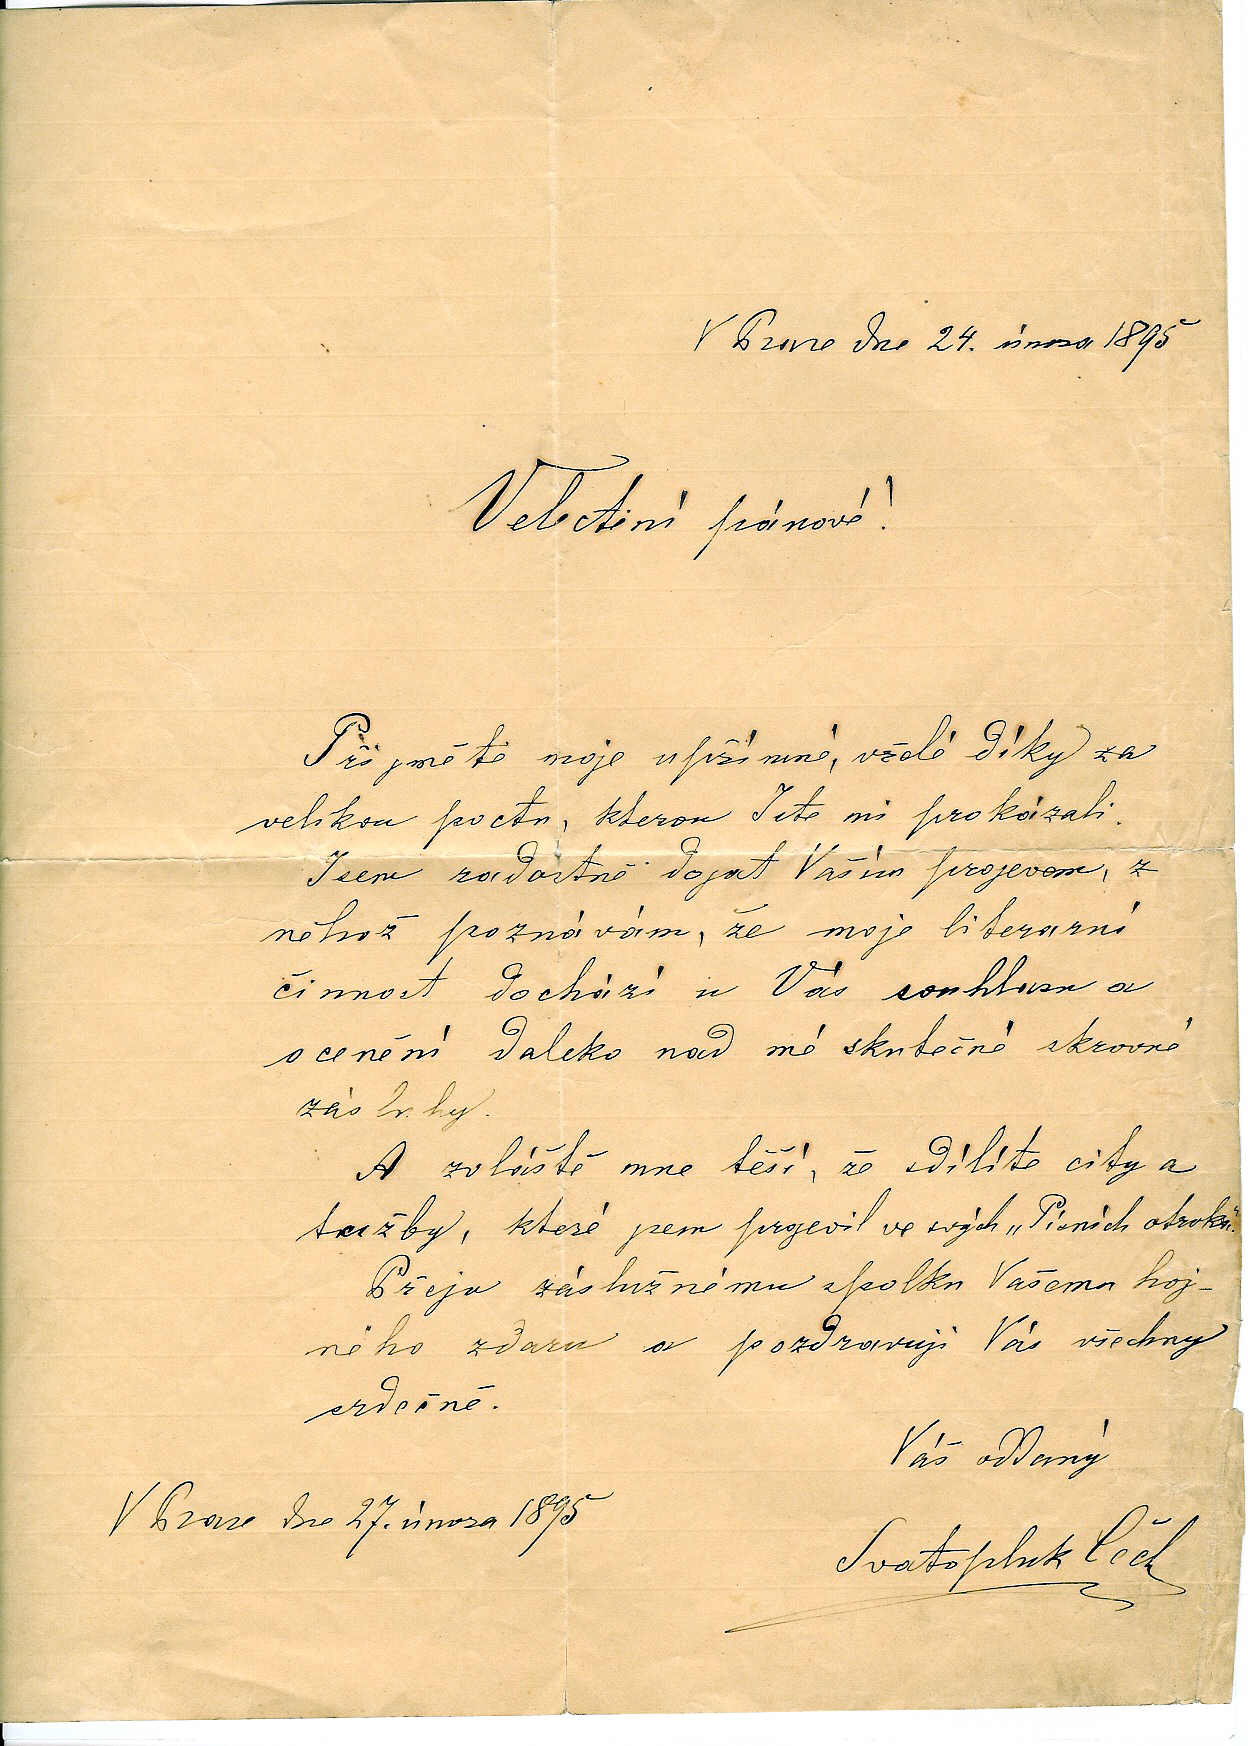 V Praze dne 24. února 1895
Velectění pánové!
Přijměte moje upřímné, vřelé díky za
velikou poctu, kterou Jste mi prokázali.
Jsem radostně dojat Vaším projevem, z
něhož poznávám, že moje literarní
činnost dochází u Vás souhlasu a
ocenění daleko nad mé skutečné skrovné
zásluhy.
A zvláště mne těší, že sdílíte city a
tužby, které jsem projevil ve svých „Písních otroka“.
Přeju záslužnému spolku Vašemu hoj-
ného zdaru a pozdravuji Vás všechny
srdečně.
Váš oddaný
V Praze dne 27. února 1895
Svatopluk Čech